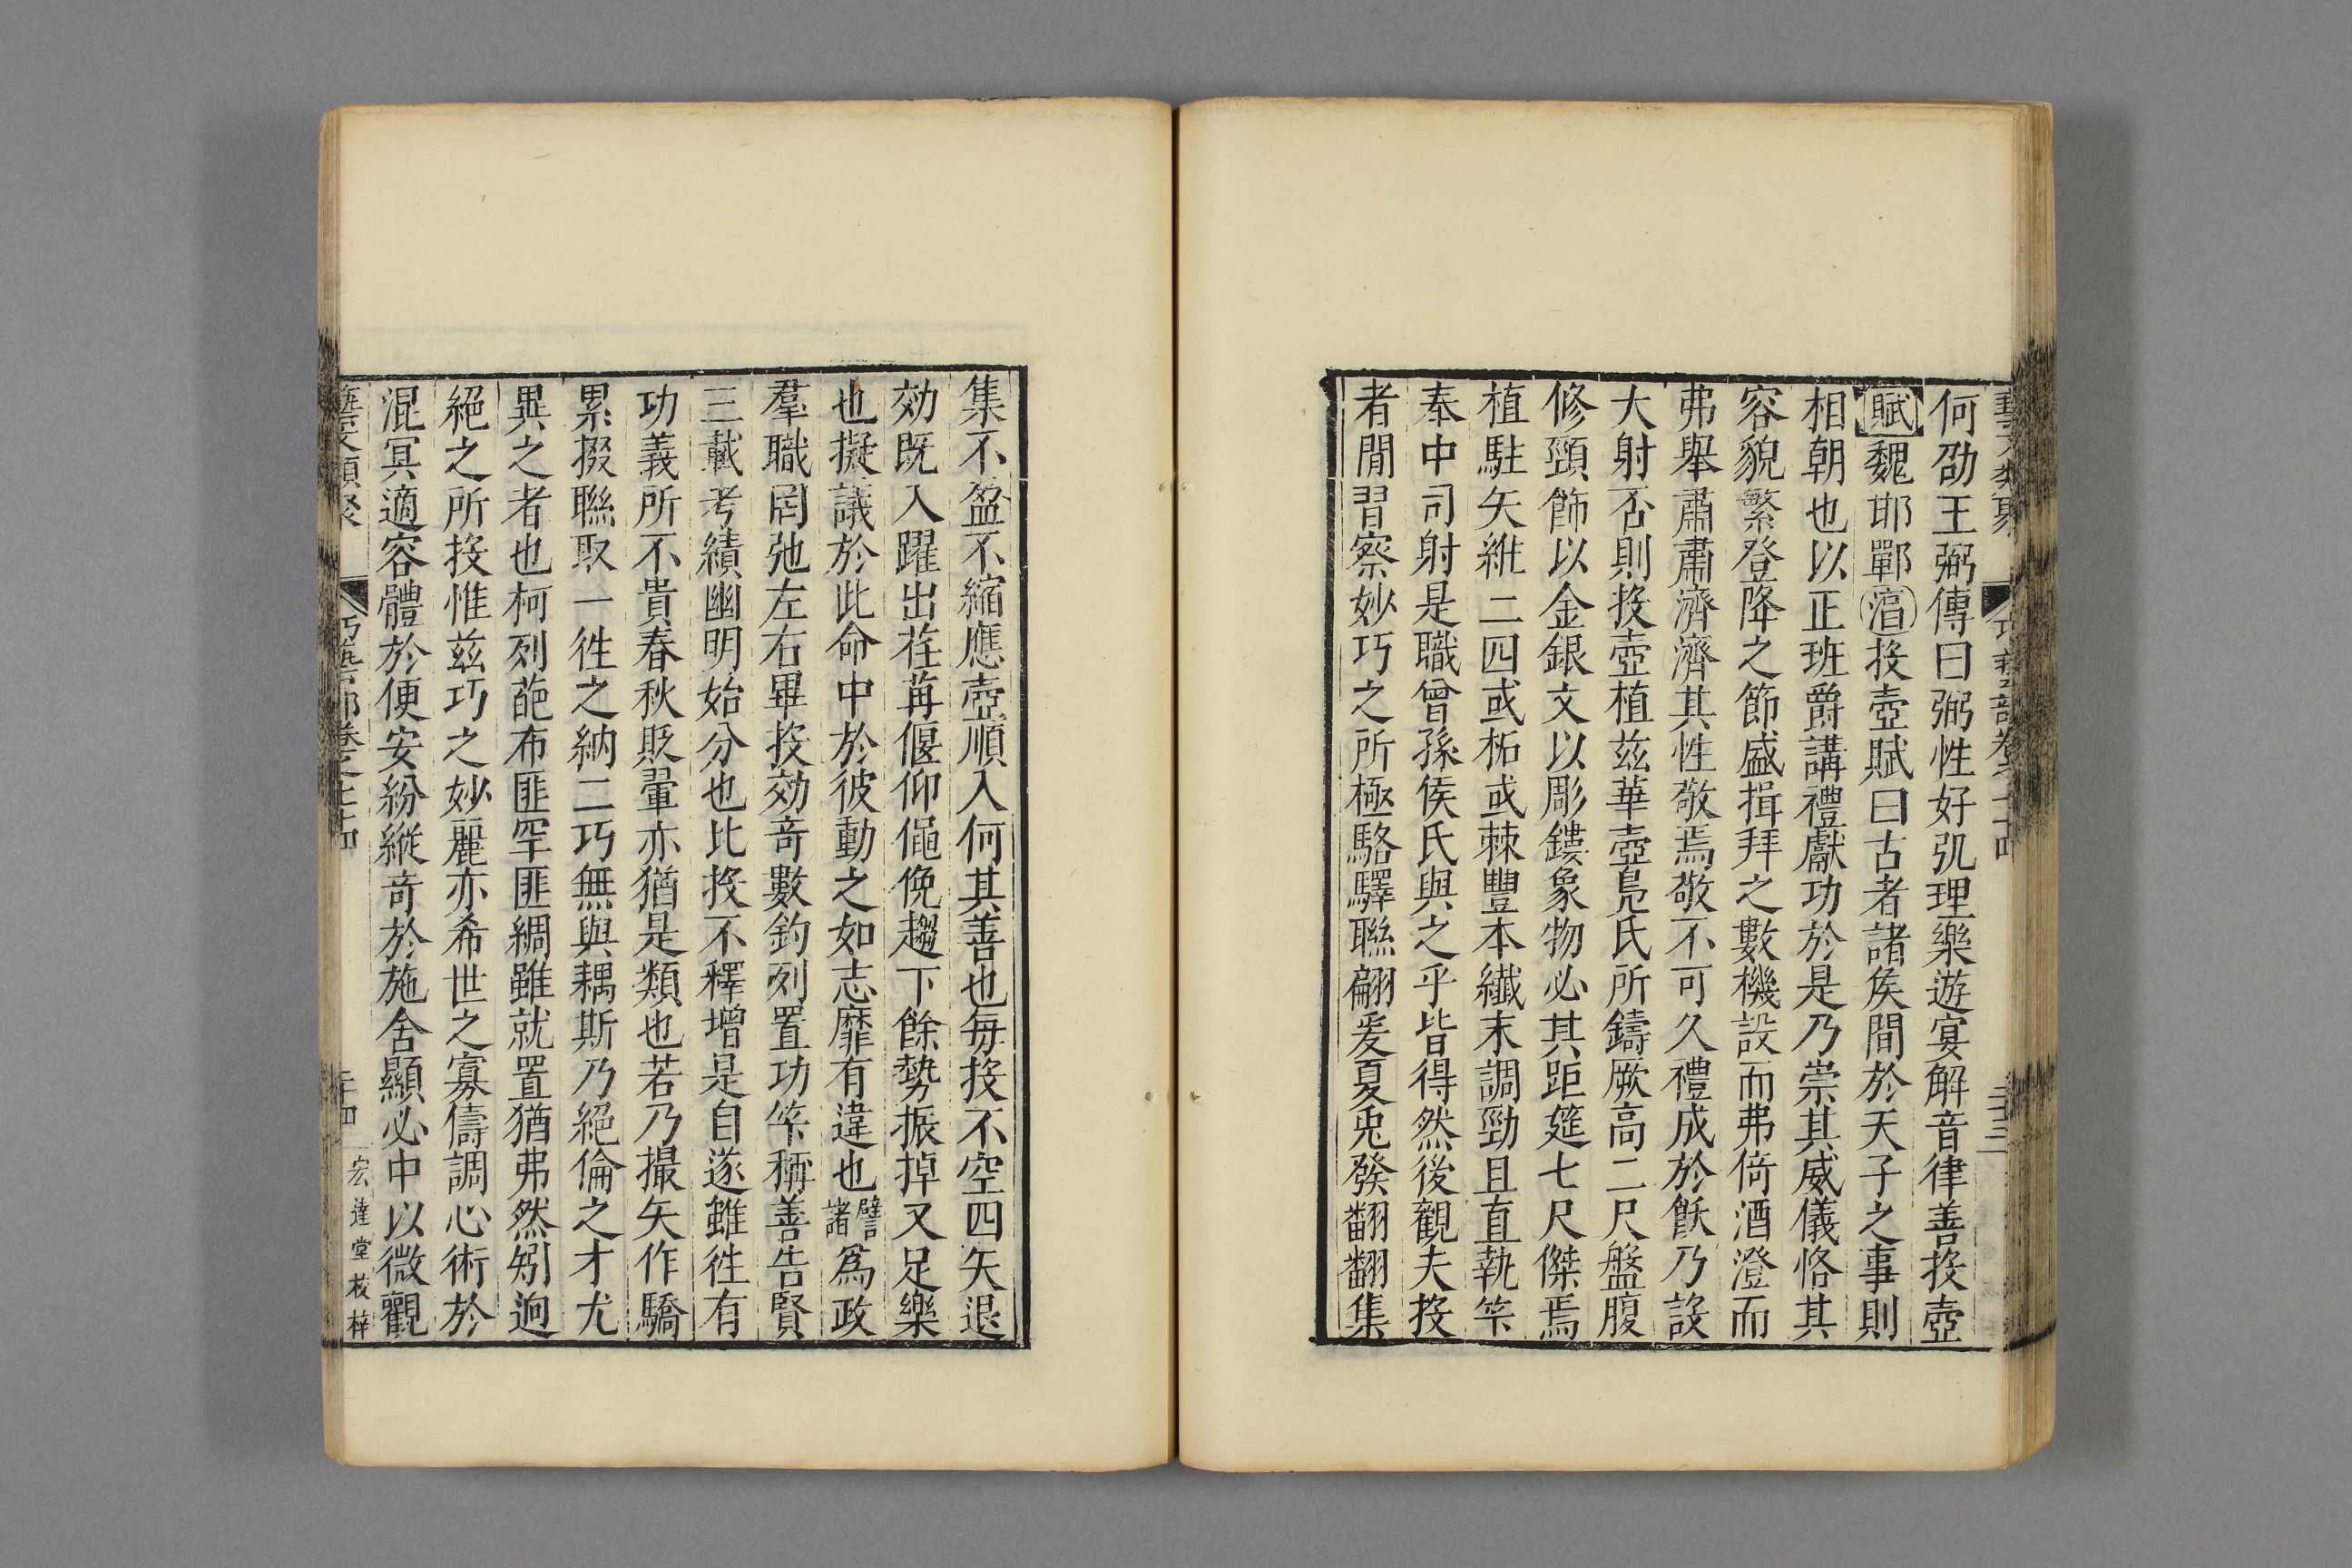 藝文類聚 巧藝部卷七十四 二十三
何劭王弼傳曰弼性好玩理樂遊宴解音律善投壺
賦魏邯鄲淳投壺賦曰古者諸矦間於天子之事則
相朝也以正班爵講禮獻功於是乃崇其威儀恪其
容貌繁登降之節盛揖拜之數機設而弗倚酒澄而
弗舉肅肅濟濟其性敬焉敬不可久禮成於飫乃設
大射否則投壺植茲華壺鳧氏所鑄厥高二尺盤腹
修頸飾以金銀文以彫鏤象物必其距筵七尺傑焉
植駐矢維二四或柘或棘豐本纖末調勁且直執筭
奉中司射是職曾孫侯氏與之乎皆得然後觀夫投
者閒習察妙巧之所極駱驛聯翩爰夏兎發翻翻集
集不盈不縮應壺順入何其善也每投不空四矢退
効既入躍出荏苒偃仰僶俛趨下餘勢振掉又足樂
也擬議於此命中於彼動之如志靡有違也譬諸爲政
羣職罔弛左右畢投効奇數鈞列置功筭稱善告賢
三載考績幽明始分也比投不釋增是自遂雖徃有
功義所不貴春秋貶翬亦猶是類也若乃撮矢作驕
累掇聯取一徃之納二巧無與耦斯乃絕倫之才尤
異之者也柯列葩布匪罕匪綢雖就置猶弗然矧迥
絕之所投惟茲巧之妙麗亦希世之寡儔調心術於
混冥適容體於便安紛縱奇於施舍顯必中以微觀
藝文類聚 巧藝部卷之七十四 二十四 宏達堂校梓